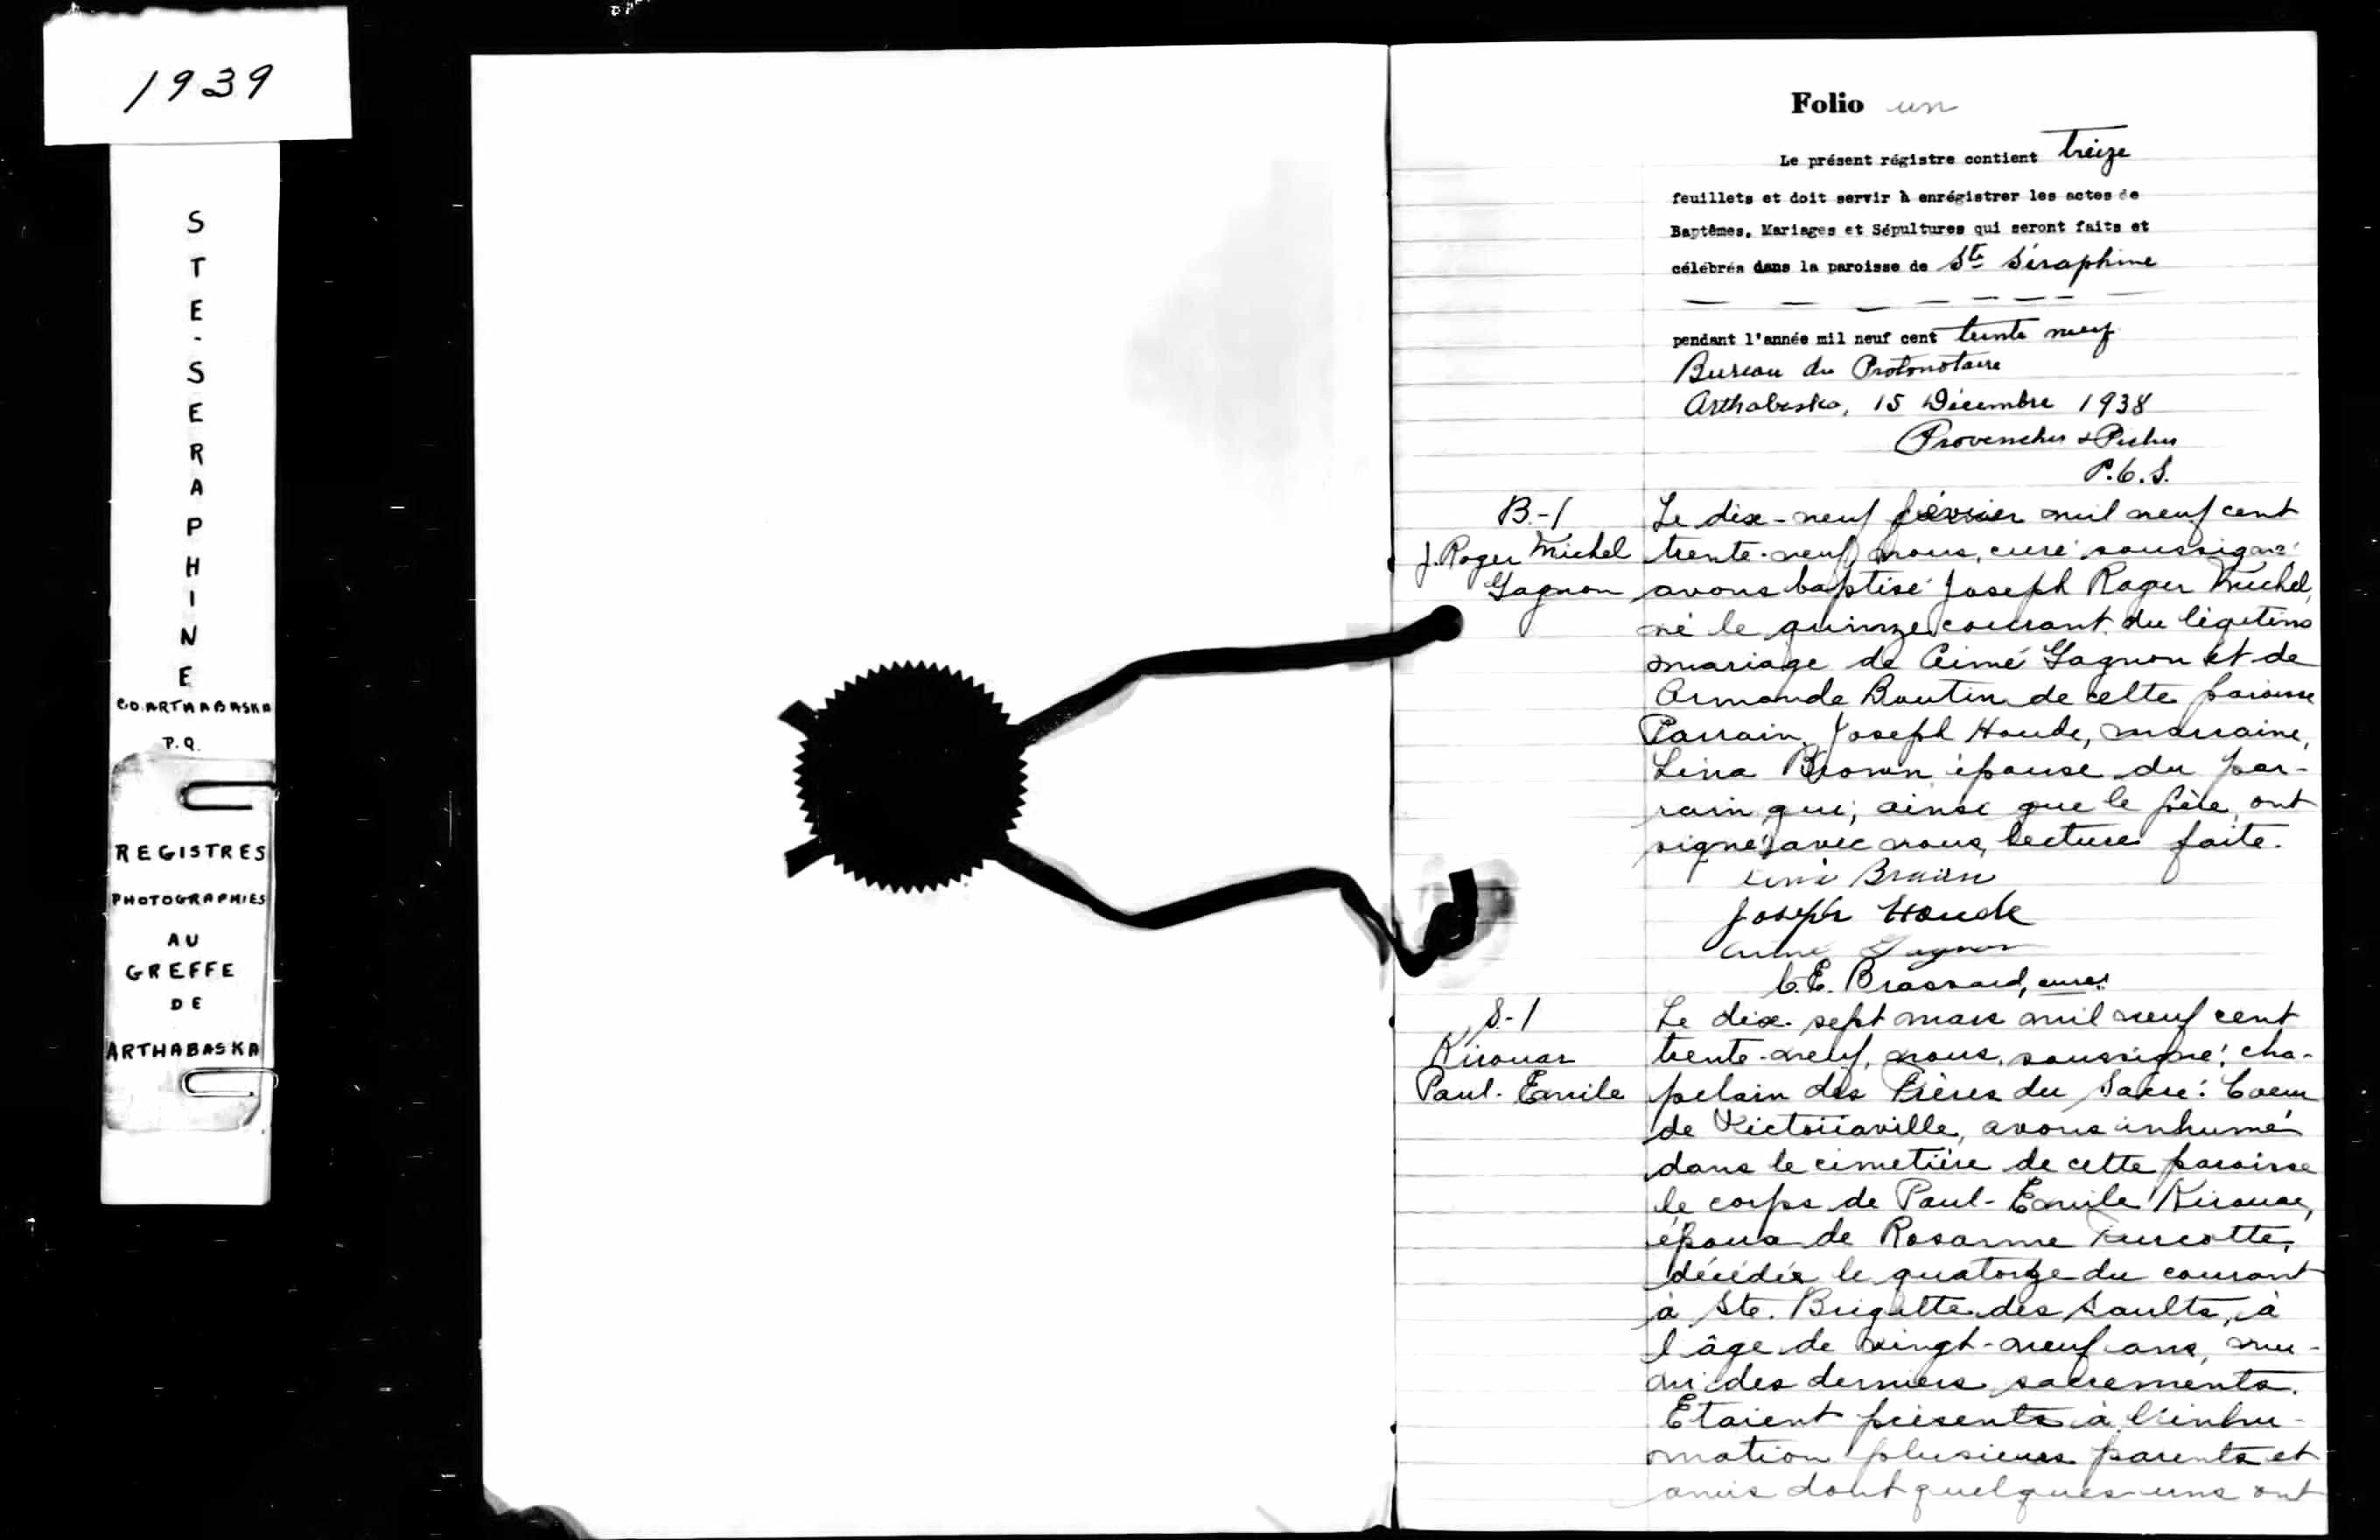 1939
STE-SERAPHINE
CO. ARTHABASKA
P.Q.
REGISTRES
PHOTOGRAPHIES
AU
GREFFE
DE
ARTHABASKA
Folio un
Le présent régistre contient treize
feuillets et doit servir à enrégistrer les actes de
Baptêmes, Mariages et Sépultures qui seront faits et
célébrés dans la paroisse de Ste Séraphine
pendant l'année mil neuf cent trente neuf
Bureau du Protonotaire
Arthabaska, 15 Décembre 1938
Provencher & Picher
P.C.S.
B.-1
J. Roger Michel
Gagnon
Le dix-neuf février mil neuf cent
trente-neuf, nous, curé soussigné
avons baptisé Joseph Roger Michel,
né le quinze courant du légitime
mariage de Aimé Gagnon et de
Armande Boutin de cette paroisse
Parrain, Joseph Houde, marraine,
Lina Brown épouse du par-
rain qui, ainsi que le père, ont
signé avec nous, lecture faite.
Brown
Joseph Houde
Aimé Gagnon
C.E. Brassard, curé
S.-1
Kirouac
Paul-Emile
Le dix-sept mars mil neuf cent
trente-neuf, nous, soussigné, cha-
pelain des Frères du Sacré-Coeur
de Victoriaville, avons inhumé
dans le cimetière de cette paroisse
le corps de Paul-Emile Kirouac,
époux de Rosanne Turcotte,
décédé le quatorze du courant
à Ste. Brigitte des Saults, à
l'âge de vingt-neuf ans, mu-
ni des derniers sacrements.
Etaient présents à l'inhu-
mation plusieurs parents et
amis dont quelques-uns ont